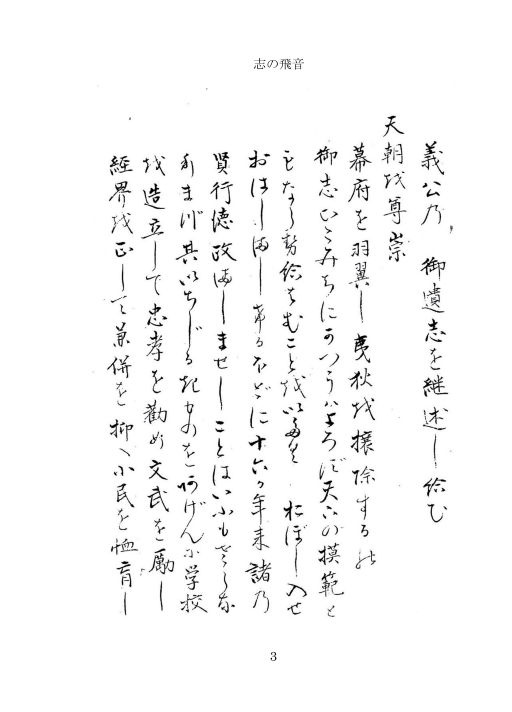 志の飛音
義公乃 御遺志を継述し給ひ
天朝越尊崇
幕府を羽翼し夷狄越攘除する能
御志ひとみちにかつうはよろづ天下の模範と
もならせ給はむこと越 おぼし入せ
おはしましけるほどに十六ヶ年来諸乃
賢行徳政ましませしことはいふもさらな
りまづ其いちじるきものをあげんに学校
越造立して忠孝を勧め文武を励し
経界越正して兼併を抑へ小民を恤育し
3